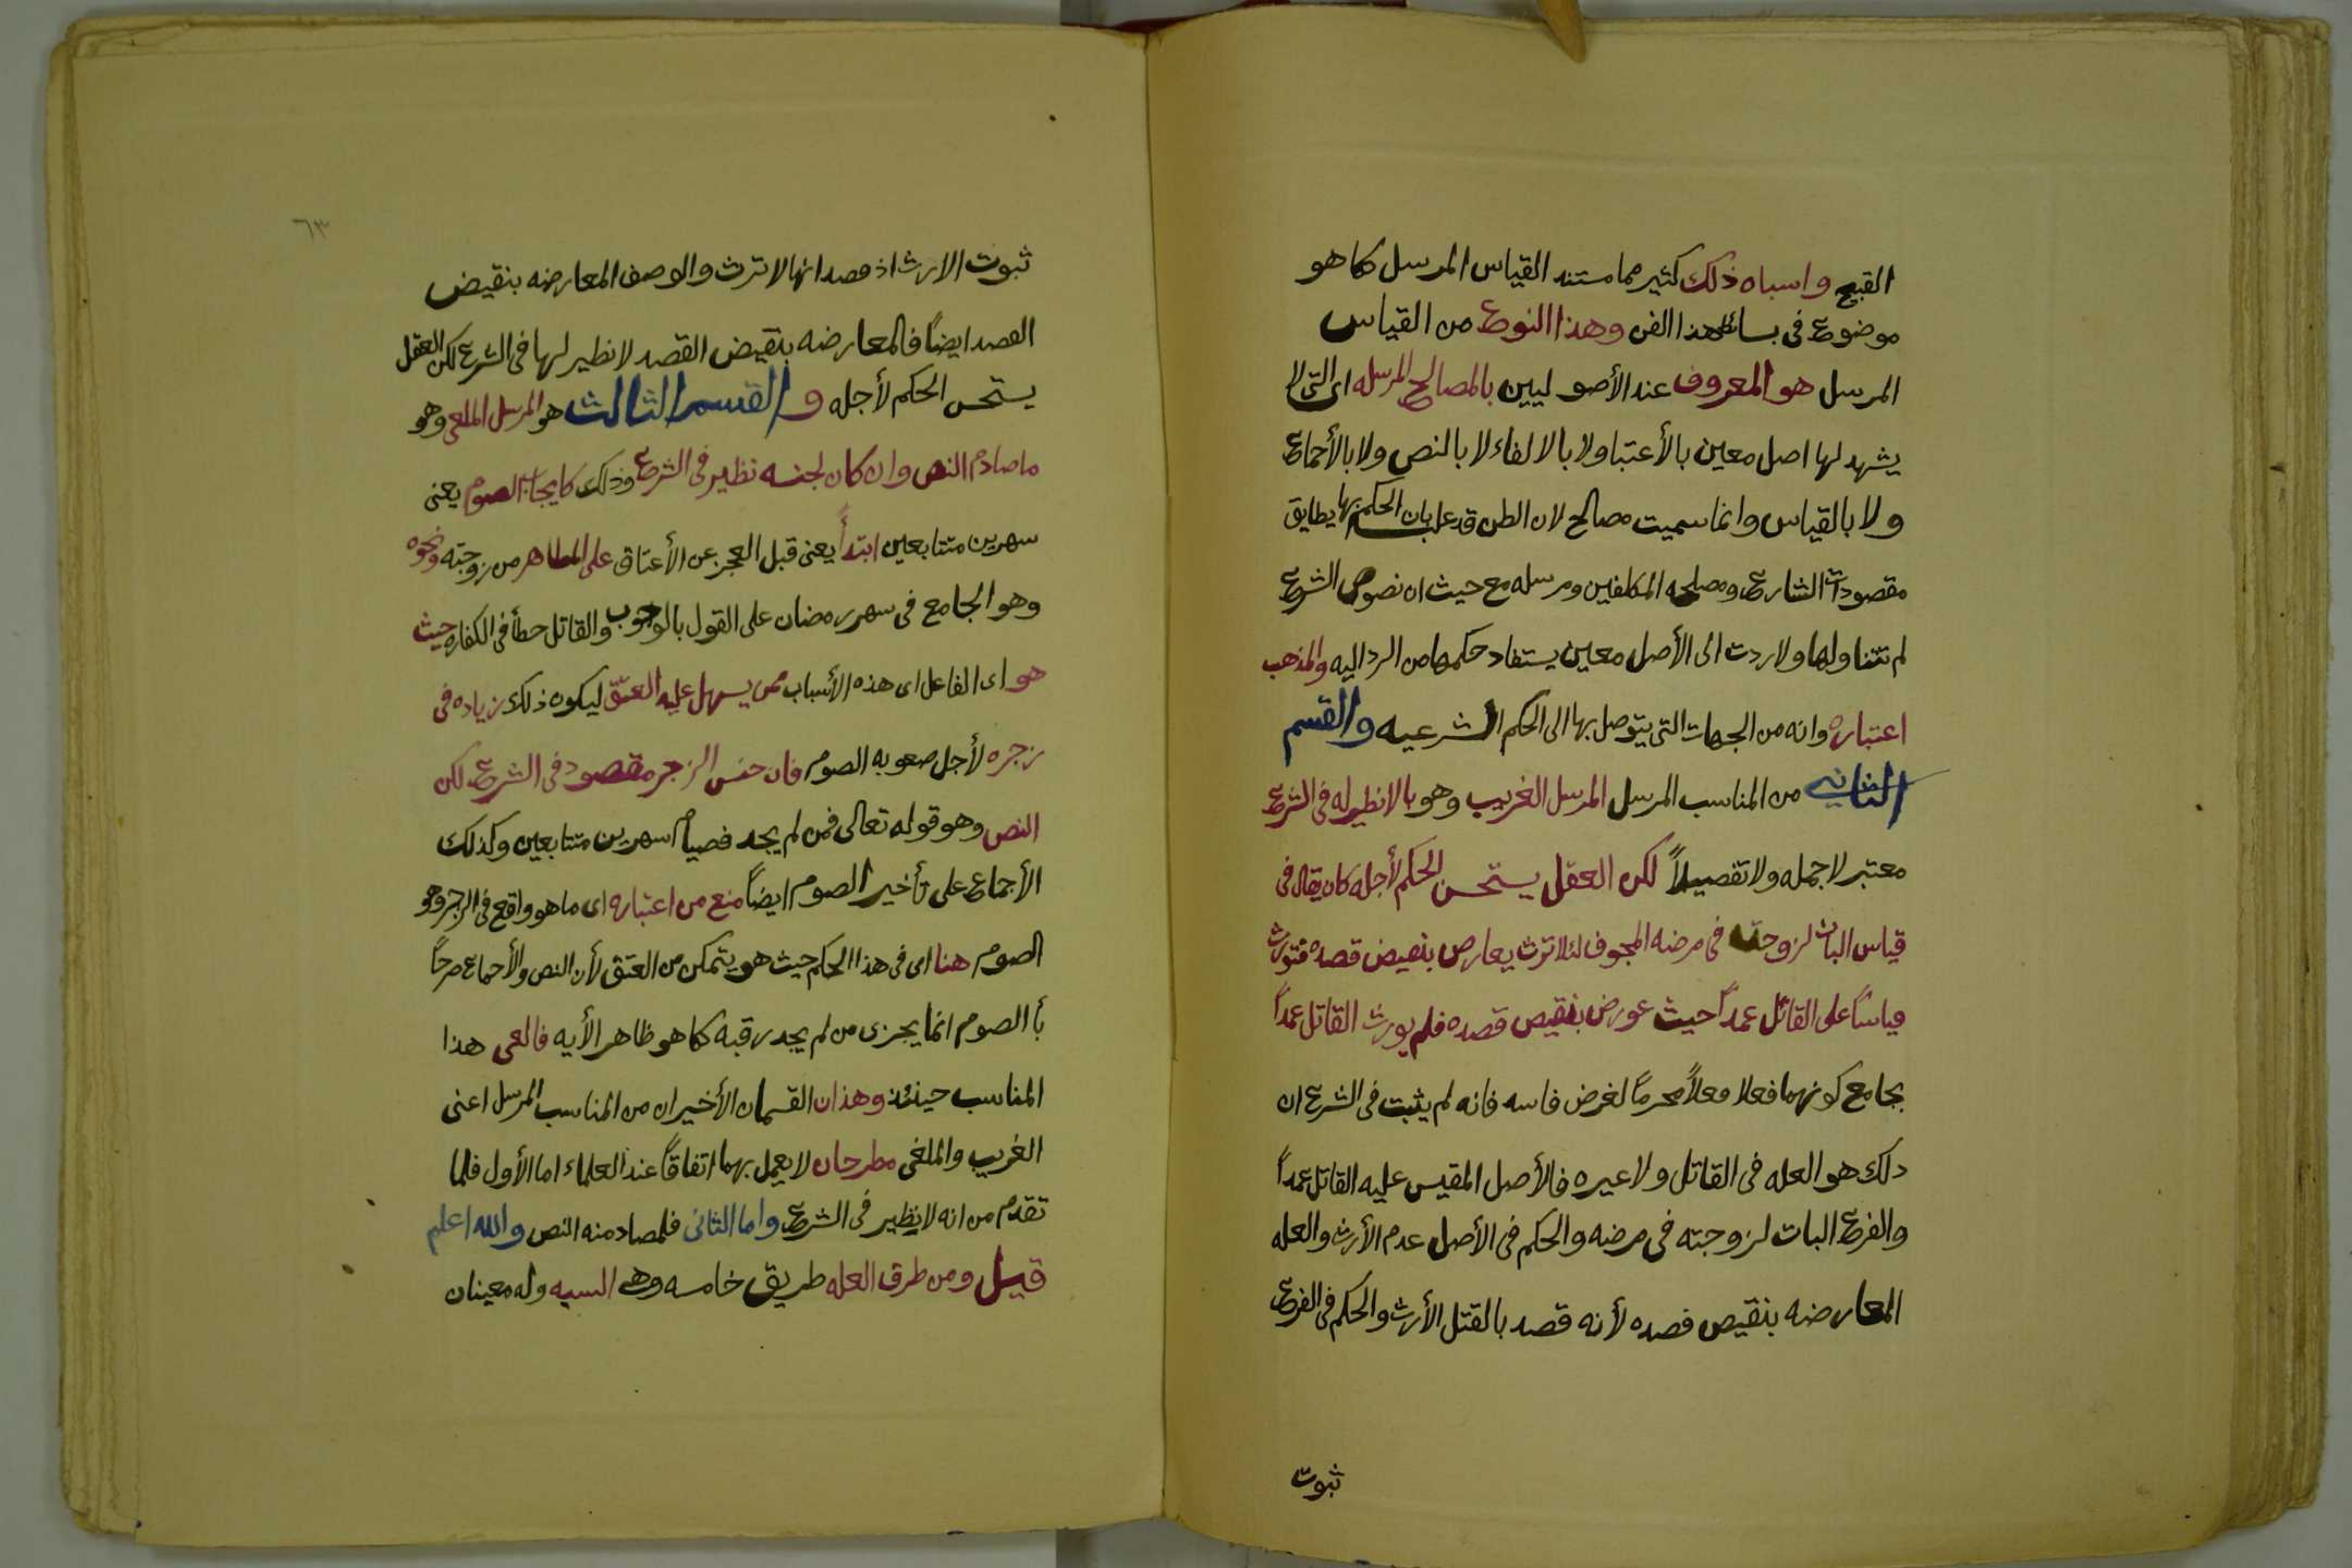 القبيح واسباه ذلك كثير مما مستند القياس المرسل كما هو
موضوع فى بسائط هذا الفن وهذا النوع من القياس
المرسل هو المعروف عند الأصوليين بالمصالح المرسله اى التى لا
يشهد لها اصل معين بالأعتبا ولا بالالفاء لا بالنص ولا بالأجماع
ولا بالقياس وانما سميت مصالح لان الطن قد غلب بان الحكم بها يطابق
مقصودات الشارع ومصلحه المكلفين ومرسله مع حيث ان نصوص الشرع
لم تتناولها ولا ردت الى الأصل معين يستفاد حكمها من الرد اليه والمذهب
اعتباره وانه من الجهات التى يتوصل بها الى الحكم الشرعيه والقسم
الثانى من المناسب المرسل المرسل الغريب وهو ما لا نظير له فى الشرع
معتبر لا جمله ولا تفصيلاً لكن العقل يستحسن الحكم لأجله كان يقال فى
قياس البات لزوجته فى مرضه المخوف لئلا ترث يعارض بنقيض قصده فتورث
قياساً على القاتل عمداً حيث عورض بنقيض قصده فلم يورث القاتل عمداً
بجامع كونهما فعلا فعلاً محرماً لغرض فاسه فانه لم يثبت فى الشرع ان
دلك هو العله فى القاتل ولا غيره فالأصل المقيس عليه القاتل عمداً
والفرع البات لزوجته فى مرضه والحكم فى الأصل عدم الأرث والعله
المعارضه بنقيص قصده لأنه قصد بالقتل الأرث والحكم فى الفرع
ثبوت
٦٣
ثبوت الارث اذ قصد انها لا ترث والوصف المعارضه بنقيض
القصد ايضاً فالمعارضه بنقيض القصد لا نطير لها فى الشرع لكن العقل
يستحسن الحكم لأجله والقسم الثالث هو المرسل الملغى وهو
ما صادم النص وان كان لجنسه نظير فى الشرع وذلك كايجاب الصوم يعنى
سهرين متتابعين ابتدأً يعنى قبل العجز عن الأعتاق على المظاهر من زوجته ونحوه
وهو الجامع فى سهر رمضان على القول بالوجوب والقاتل حطأ فى الكفاره حيث
هو اى الفاعل اى هذه الأسباب ممن يسهل عليه العتق ليكون ذلك زياده فى
زجره لأجل صعوبه الصوم فان جنس الزجر مقصود فى الشرع لكن
النص وهو قوله تعالى فمن لم يجد فصيام سهرين متتابعين وكذلك
الأجماع على تأخير الصوم ايضاً منع من اعتباره اى ما هو واقع فى الزجر وهو
الصوم هنا اى فى هذا الحكم حيث هو يتمكن من العتق لأن النص والأجماع صرحا
بأ الصوم انما يجزى من لم يجد رقبه كما هو ظاهر الأيه فالغى هذا
المناسب حينئذ وهذان القسمان الأخيران من المناسب المرسل اعنى
الغريب والملغى مطرحان لا يعمل بهما اتفاقاً عند العلماء اما الأول فلما
تقدم من انه لا نظير فى الشرع واما الثانى فلمصادمته النص والله اعلم
قيل ومن طرق العله طريق خامسه وهى السبه وله معينان